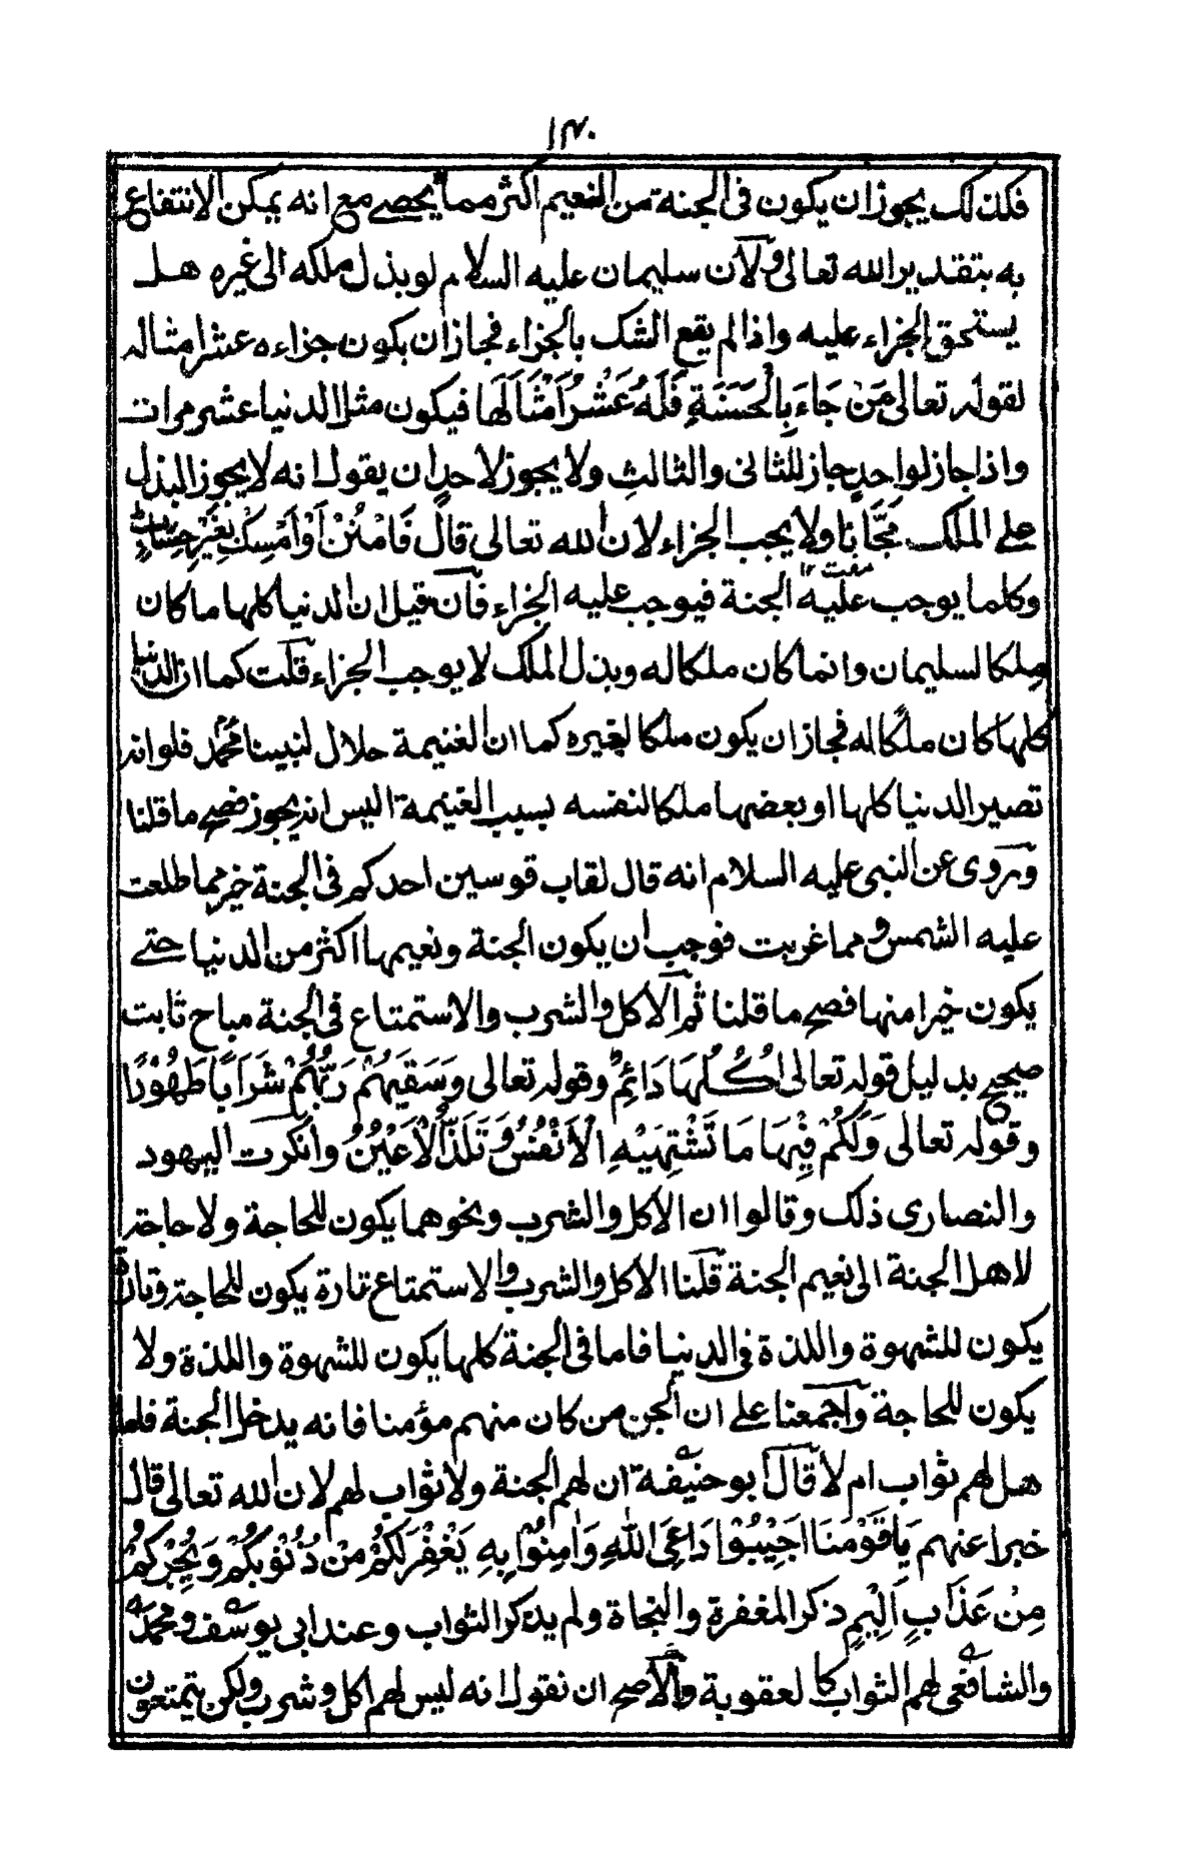 ١٣٠
فكذلك يجوز ان يكون فى الجنة من النعيم اكثر مما يحصے مع انه يمكن الانتفاع
به بتقدير الله تعالى ولان سليمان عليه السلام لو بذل ملكه الى غيره هل
يستحق الجزاء عليه واذا لم يقع الشك بالجزاء فجاز ان يكون جزاءه عشر امثاله
لقوله تعالى مَنْ جَاءَ بِالْحَسَنَةِ فَلَهُ عَشْرُ اَمْثَالَهَا فيكون مثل الدنيا عشر مرات
واذا جاز لواحدٍ جاز للثانى والثالثِ ولا يجوز لاحدٍ ان يقول انه لا يجوز البذل
علے الملك مجَّانا ولا يجب الجزاء لان الله تعالى قال فَامْنُنْ اَوْ اَمْسِكْ بِغَيْرِ حِسَابٍ
مفت ١٢
وكلما يوجب عليه الجنة فيوجب عليه الجزاء فآن قيل ان الدنيا كلها ما كان
ملكا لسليمان وانما كان ملكا له وبذل الملك لا يوجب الجزاء قلت كما ان الدنيا
كلها كان ملكًا له فجاز ان يكون ملكا لغيره كما ان الغنيمة حلال لنبينا محمد فلو انه
تصير الدنيا كلها او بعضها ملكا لنفسه بسبب الغنيمة اليس انه يجوز فصح ما قلنا
وروى عن النبى عليه السلام انه قال لقاب قوسين احدكم فى الجنة خير مما طلعت
عليه الشمس ومما غربت فوجب ان يكون الجنة ونعيمها اكثر من الدنيا حتے
يكون خيرا منها فصح ما قلنا ثم الاكل والشرب والاستمتاع فى الجنة مباح ثابت
صحيح بدليل قوله تعالى اُكُلُهَا دَائِمٌ وقوله تعالى وَسَقٰيهُمْ رَبُّهُمْ شَرَابًا طَهُوْرًا
وقوله تعالى وَلَكُمْ فِيْهَا مَا تَشْتَهِيْهِ الْاَنْفُسُ وَتَلَذُّ الْاَعْيُنُ وانكرت اليهود
والنصارى ذلك وقالوا ان الاكل والشرب ونحوهما يكون للحاجة ولا حاجة
لاهل الجنة الى نعيم الجنة قلنا الاكل والشرب والاستمتاع تارة يكون للحاجة وتارة
يكون للشهوة واللذة فى الدنيا فاما فى الجنة كلها يكون للشهوة واللذة ولا
يكون للحاجة واجمعنا علے ان الجن من كان منهم مؤمنا فانه يدخل الجنة فلعل
هل لهم ثواب ام لا قال ابو حنيفة ان لهم الجنة ولا ثواب لهم لان الله تعالى قال
خبرا عنهم يَا قَوْمَنَا اَجِيْبُوْا دَاعِىَ اللّٰهِ وَاٰمِنُوْا بِهِ يَغْفِرْ لَكُمْ مِنْ ذُنُوْبِكُمْ وَيُجِرْكُمْ
مِنْ عَذَابٍ اَلِيْمٍ ذكر المغفرة والنجاة ولم يذكر الثواب وعند ابى يوسف ومحمد
والشافعى لهم الثواب كالعقوبة والاصح ان نقول انه ليس لهم اكل وشرب ولكن يتمتعون